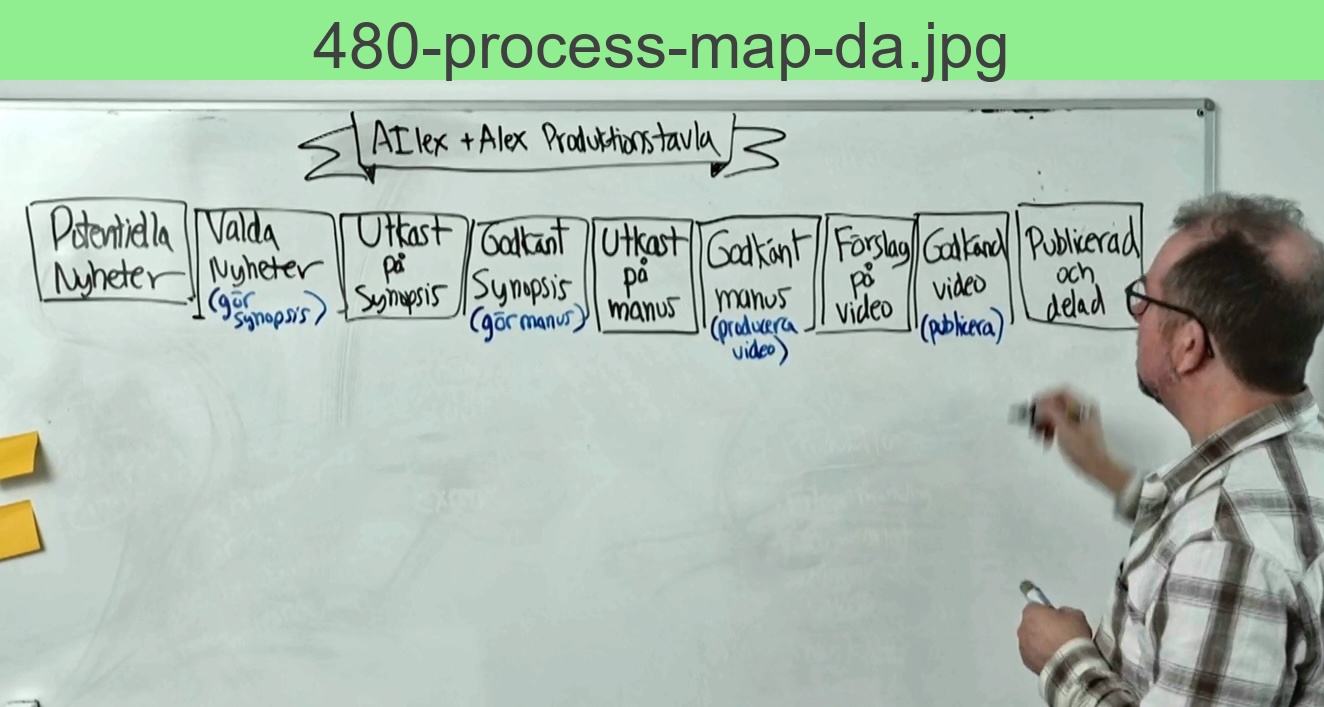 480-process-map-da.jpg
AIlex + Alex Produktionstavla
Potentiella
Nyheter
Valda
Nyheter
(gör
synopsis)
Utkast
på
Synopsis
Godkänt
Synopsis
(gör manus)
Utkast
på
manus
Godkänt
manus
(producera
video)
Förslag
på
video
Godkänd
video
(publicera)
Publicerad
och
delad